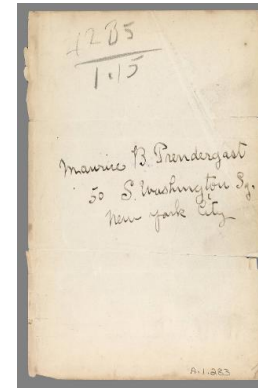 1285
1.15
Maurice B. Prendergast
50 S. Washington Sq.
New York City
A.1.283